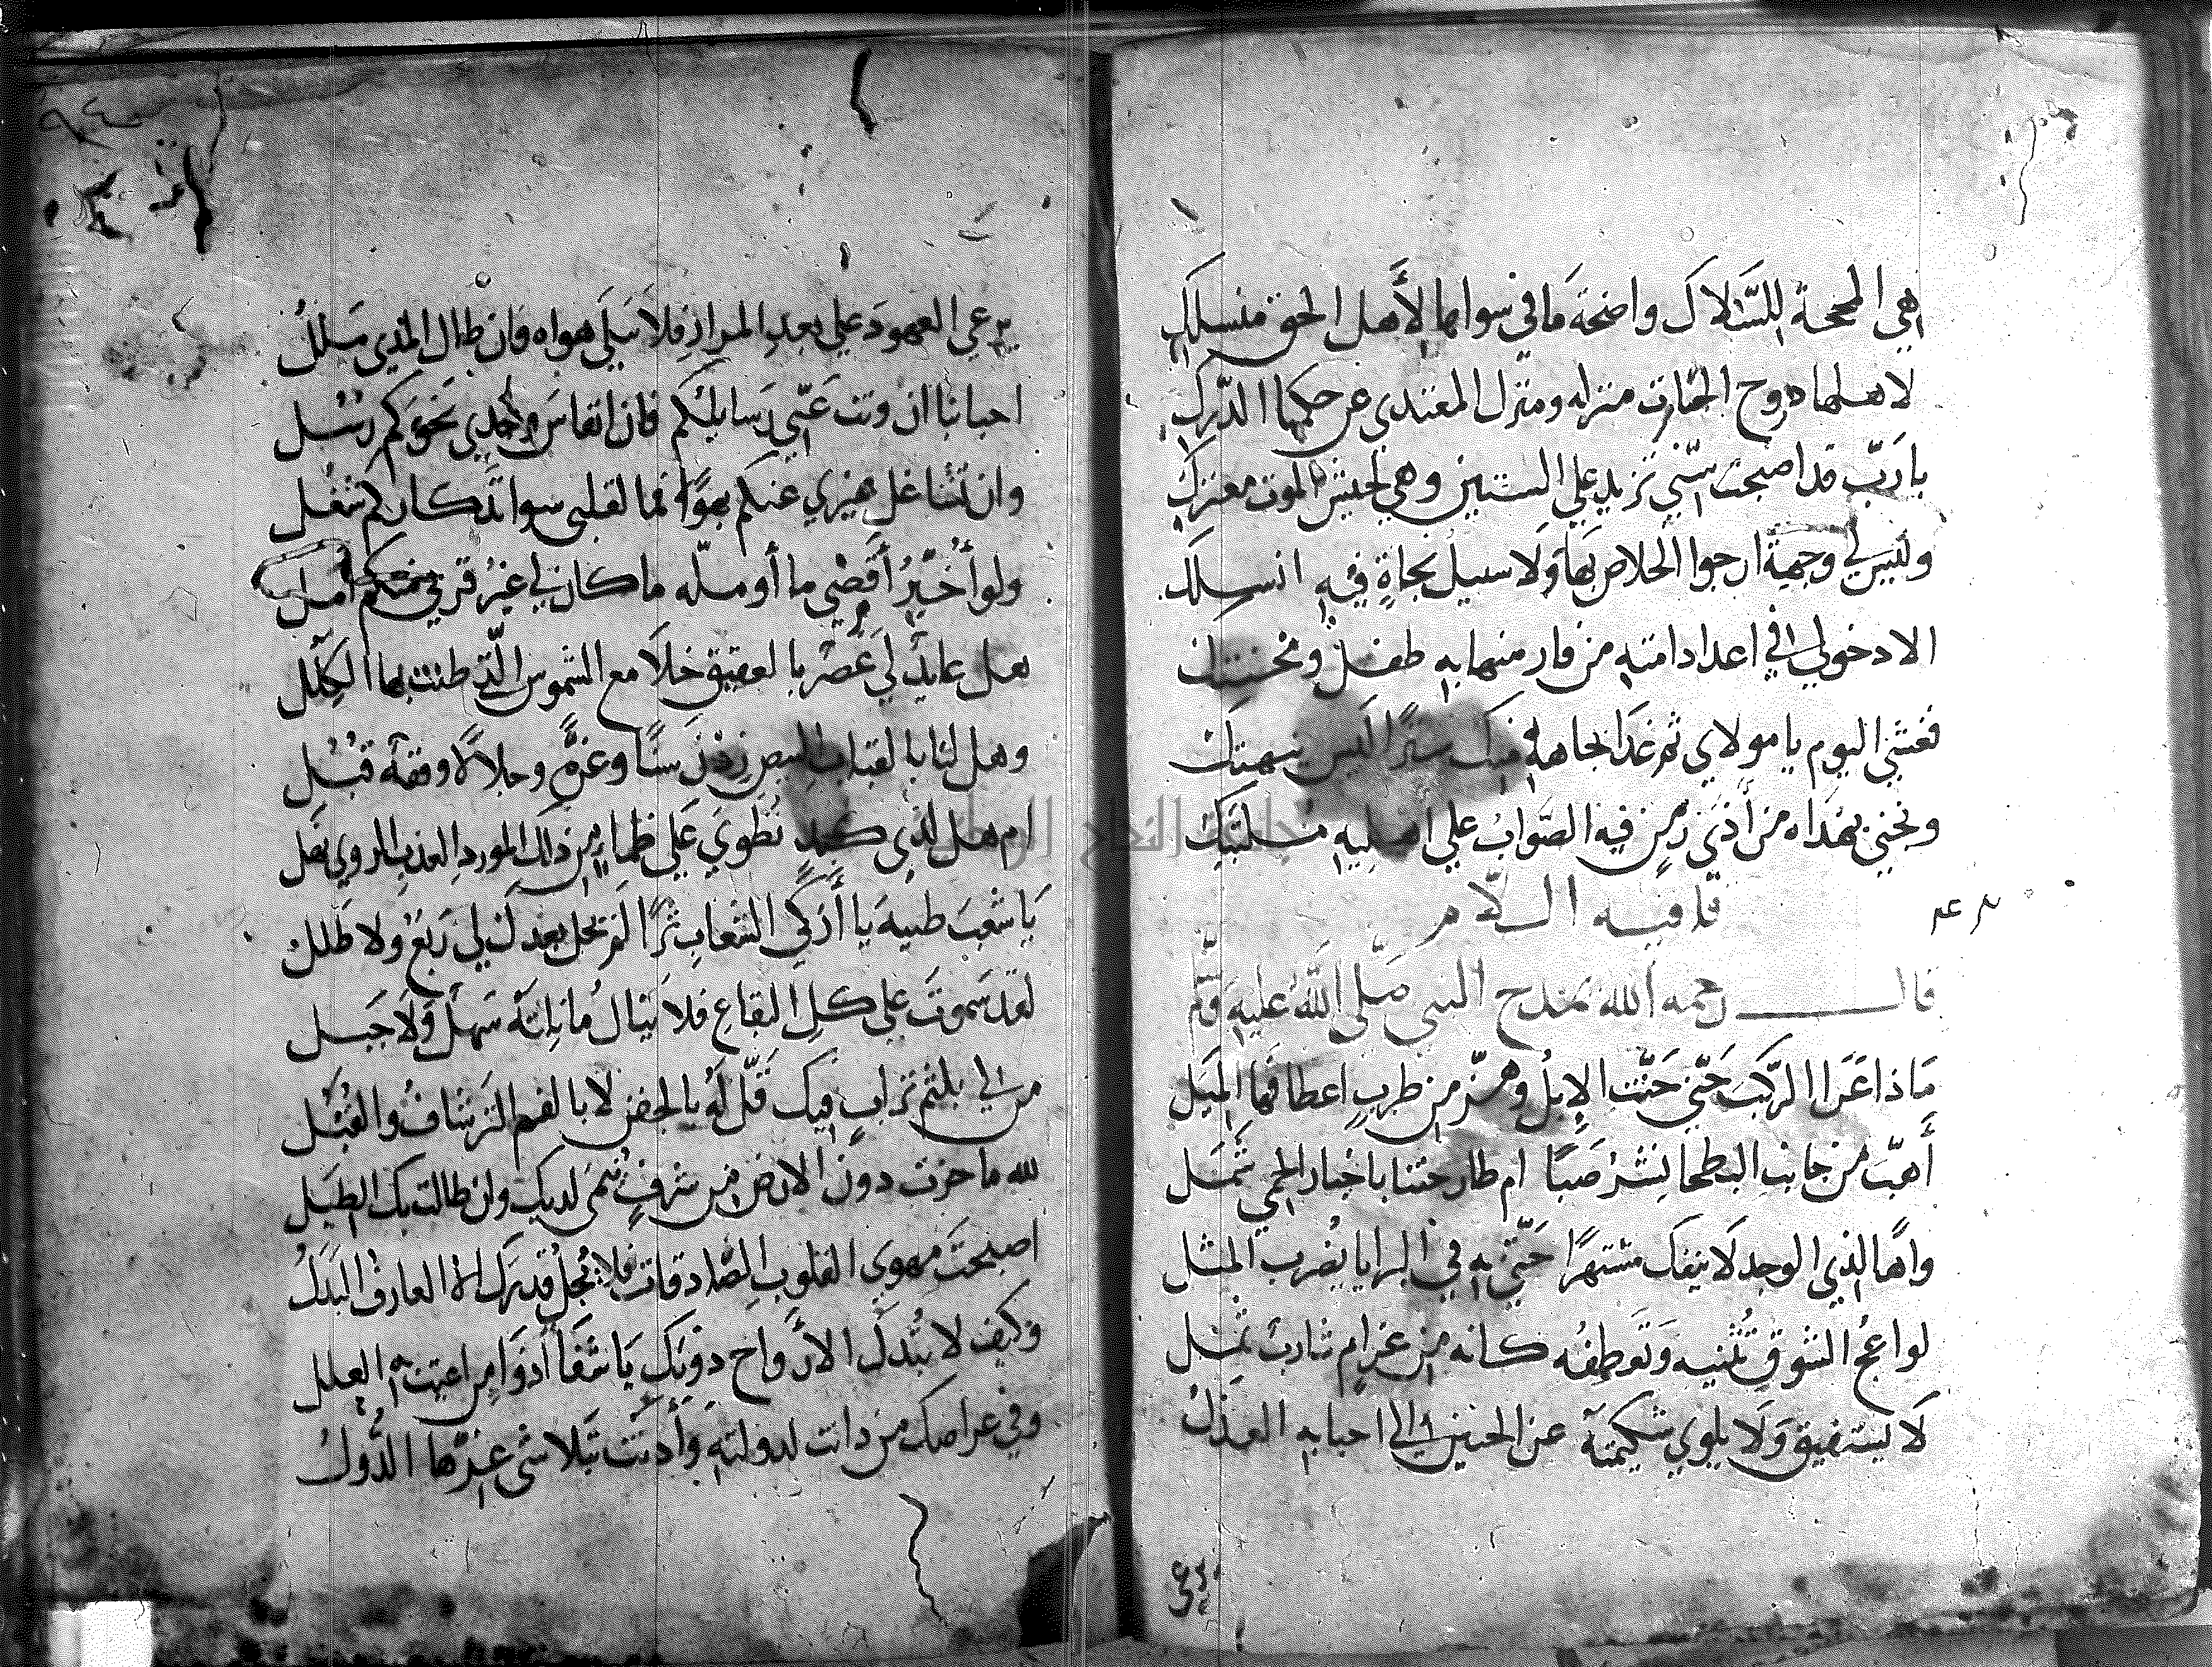 هي المحجة للسلاك واضحة ما في سواها لأهل الحق منسلك
لاهلها دوح الجنات منزله ومنزل المعتدي عن حكمها الدرك
يا رب قد اصبحت سني تزيد علي الستين وهي لجيش الموت معترك
وليس لي وجهة ارجوا الخلاص بها ولا سبيل نجاة فيه انسلك
الا دخولي في اعداد امته من فاز منها به طفل ومحتنك
فغثني اليوم يا مولاي ثم غدا بجاهه منك سترا ليس ينهتك
ونجني بهداه من أذي زمن فيه الصواب علي اهليه مشتبك
قافيه اللام
قال رحمه الله يمدح النبي صلى الله عليه وسلم
ماذا عرا الركب حتي حنت الإبل وهز من طرب اعطافها الميل
أهب من جانب البطحا نشر صبا ام طارحتنا باخبار الحمي شمل
واها لذي الوجد لا ينفك مشتهرا حتي به في البرايا يضرب المثل
لواعج الشوق تثنيه وتعطفه كانه من غرام شارب ثمل
لا يستفيق ولا يلوي شكيمته عن الحنين الي احبابه العذل
يرعي العهود علي بعد المزار فلا يسلي هواه وان طال المدي ملل
احبابنا ان ونت عني رسايلكم فان انفاس وجدي نحوكم رسل
وان تشاغل غيري عنكم بهوا فما لقلبي سوا تذكاركم شغل
ولو أخير أقضي ما أومله ما كان لي غير قربي منكم امل
هل عايد لي عصر بالعقيق خلا مع الشموس التي طنت بها الكلل
وهل لنا بالقباب البيض زدن سنا وعزة وجلالا وقفة قبل
ام هل لذي كبد تطوي علي ظماء من ذلك المورد العذب الروي نهل
يا شعب طيبة يا أزكي الشعاب ثرا لم يحل بعدك لي ربع ولا طلل
لقد سموت علي كل البقاع فلا ينال ما نلته سهل ولا جبل
من لي بلثم تراب فيك قل له بالجفن لا بالفم الترشاف والقبل
لله ما حزت دون الارض من شرف نمى لديك ولن طالت بك الطيل
اصبحت مهوي القلوب الصادقات فلا يجل قدرك الا العارف البدل
وكيف لا تبذل الارواح دونك يا شفا أدوا من اعيت به العلل
وفي عراصك من دانت لدولته وأذنت بتلاشى عزها الدول